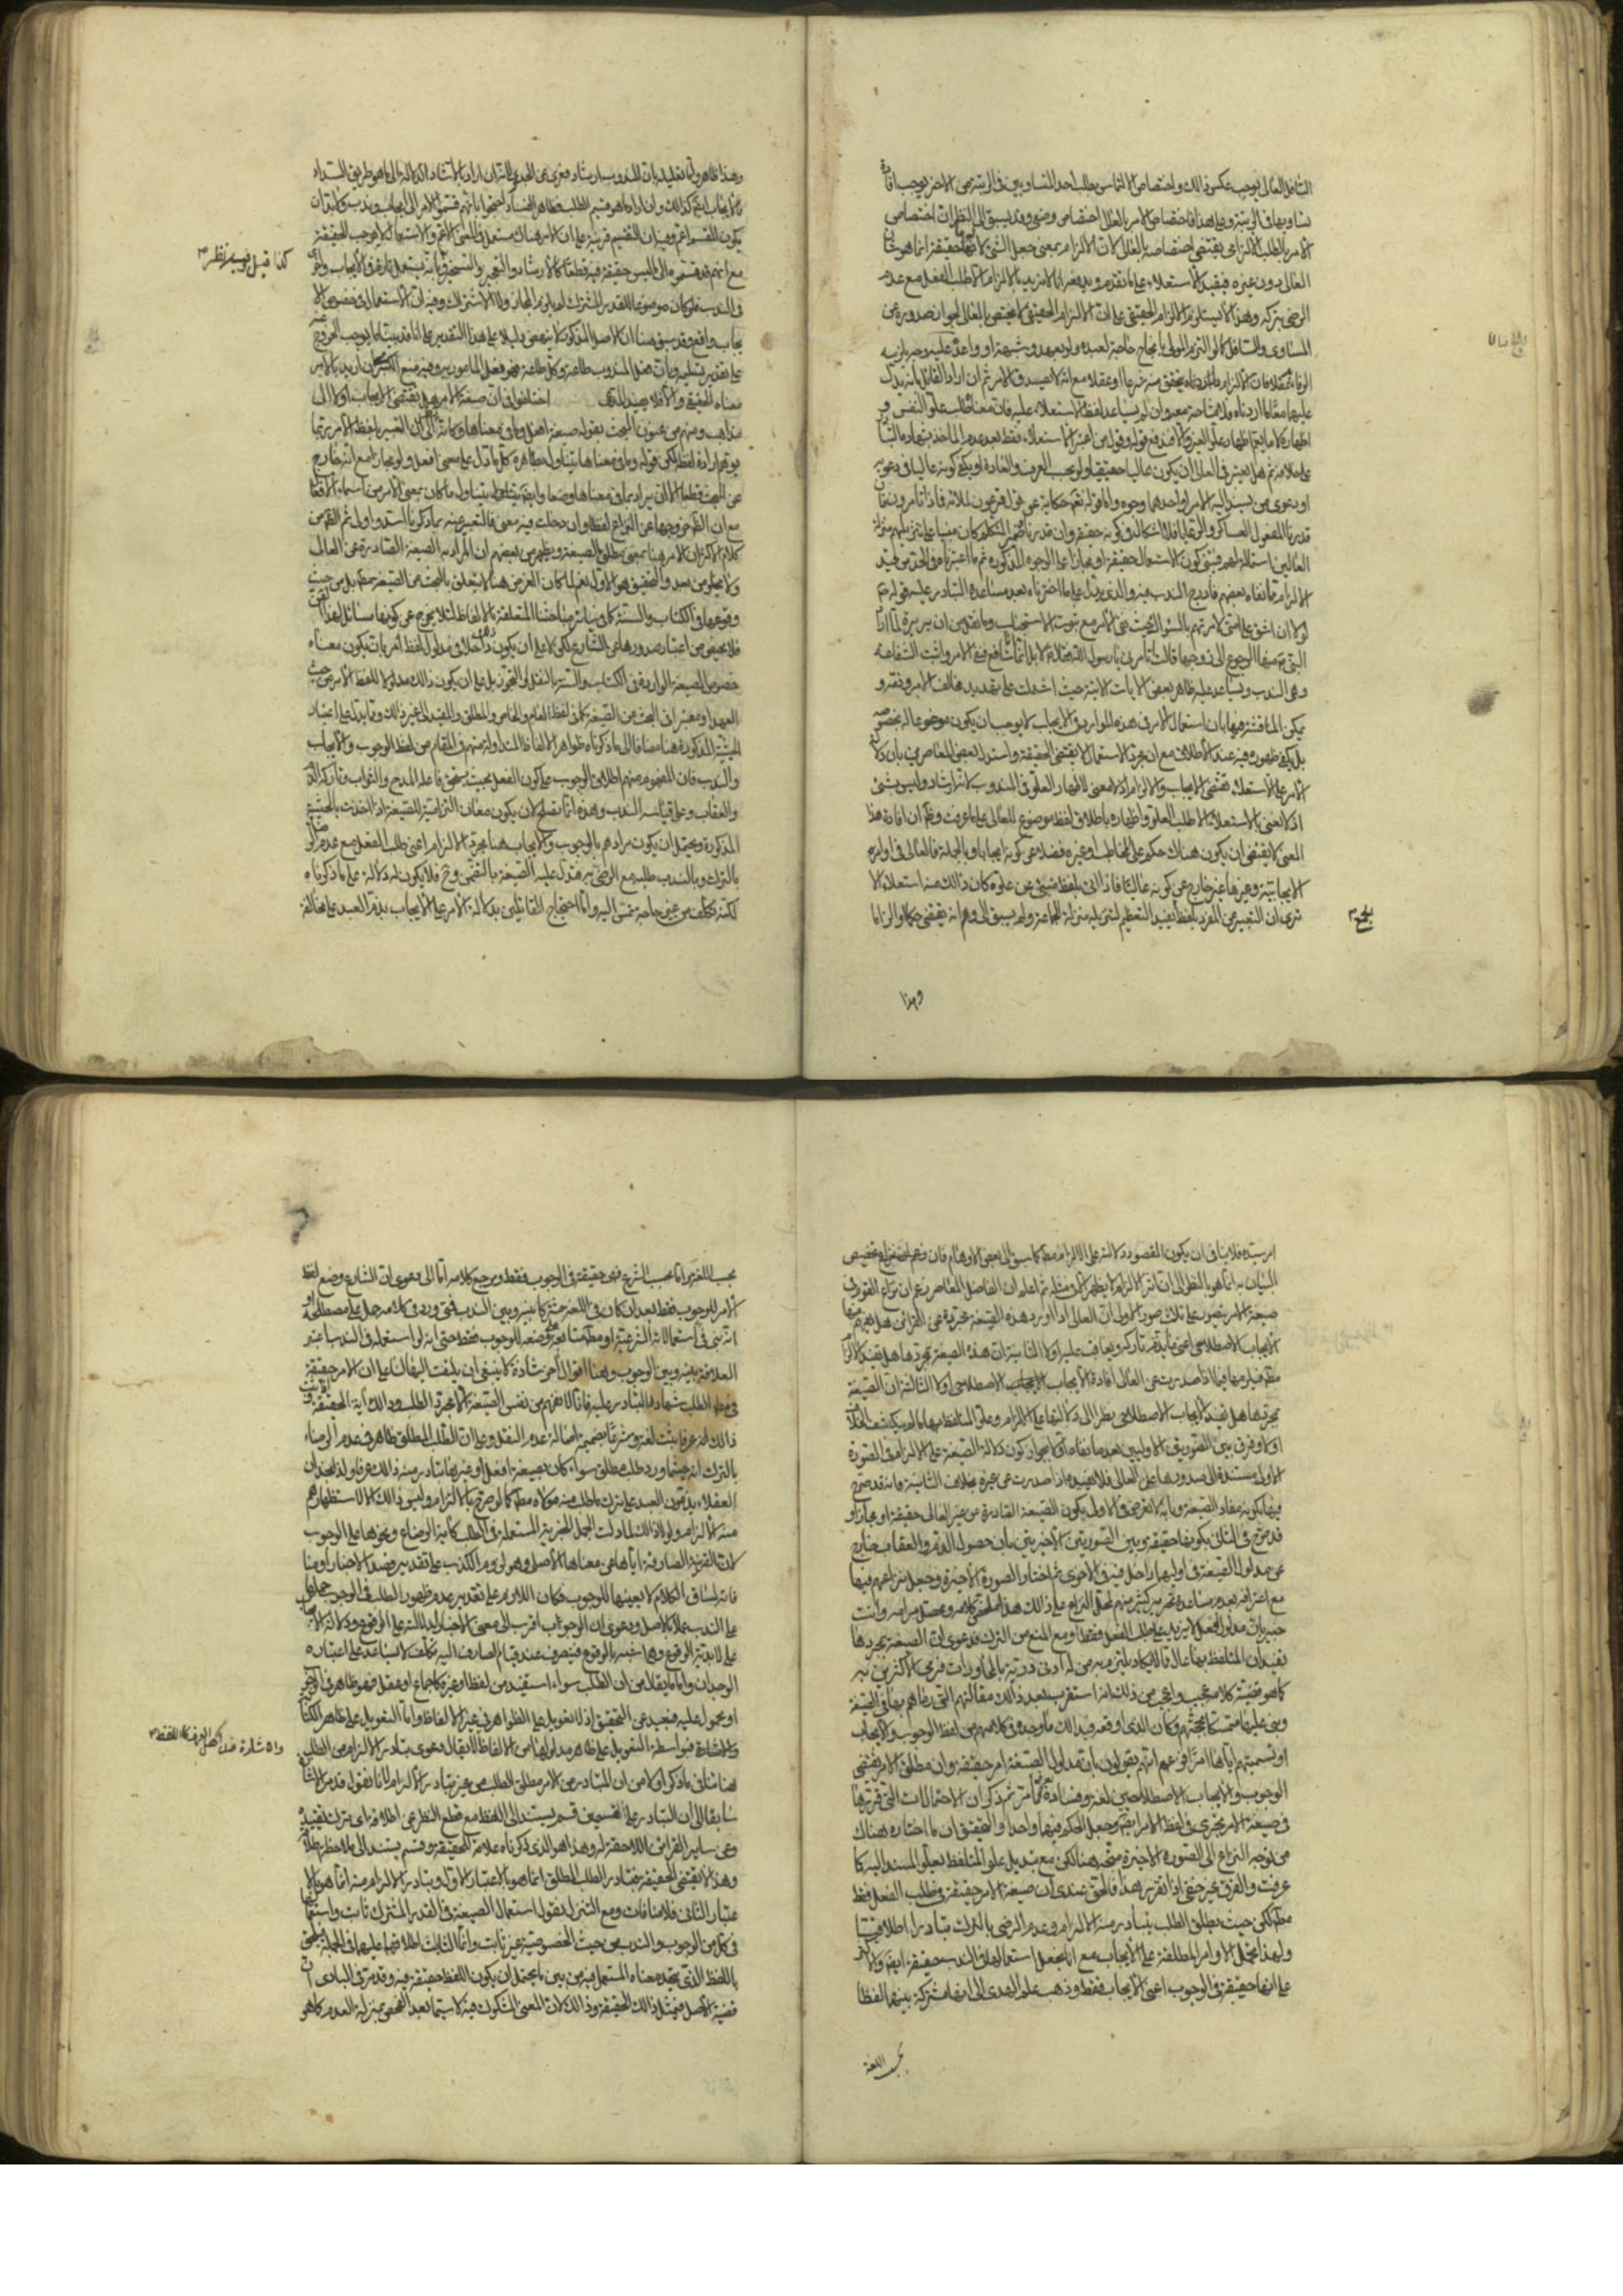 السافل العالي يوجب عكس ذالك واختصاص الالتماس بطلب احد المتساويين في الرتبة من الاخر يوجب افادة
تساويهما في الرتبة وعلى هذا فاختصاص الامر بالعالى اختصاص وضعى وقد يسبق الى النظر ان اختصاص
الامر بالطلب الالزامى يقتضى اختصاصه بالعالى لان الالزام بمعنى جعل الشئ لازما حقيقة انما هو شان
العالى دون غيره فيفيد الاستعلاء على ما تقدم ويدفعه انا لا نريد بالالزام الا طلب الفعل مع عدم
الرضى بتركه وهذا لا يستلزم الالزام الحقيقى على ان الالزام الحقيقى لا يختص بالعالى لجواز صدوره عن
المساوى والسافل كما لو التزم المولى بانجاح حاجة لعبده ولو بعهد وشبهه او واعده عليه وجه يلزمه
عليها معنا ما اردناه فلا مشاحة معه وان لم يساعد لفظ الاستعلاء عليه فان معناه طلب علو النفس و
على علامة ثم هل يعتبر في العالى ان يكون عاليا حقيقيا ولو بحسب العرف والعادة او يكفى كونه عاليا في دعويه
او دعوى من يسند اليه الامر او احدهما وجوه واما قوله تعالى حكاية عن قول فرعون لملائه فماذا تامرون فان
العالين استمالة لهم فيبتنى كون الاستعمال حقيقة او مجازا على الوجوه المذكورة ثم ما اعتبرناه في الحد من قيد
الالزام مما نفاه بعضهم فادرج الندب فيه والذى يدل على ما اخترناه بعد مساعدة التبادر عليه قوله ص
لولا ان اشق على امتى لامرتهم بالسواك حيث نفى الامر مع ثبوت الاستحباب وما نقل من ان بريرة لما اراد
النبي ص منها الرجوع الى زوجها قالت اتامرنى يا رسول الله فقال لا بل انما انا شافع فنفى الامر واثبت الشفاعة
وهى الندب ويساعد عليه ظاهر بعض الايات الاتية حيث اشتملت على تهديد مخالف الامر ونفرو
يمكن المناقشة فيها بان استعمال الامر في هذه الموارد في الايجاب لا يوجب ان يكون موضوعا له بخصوصه
بل يكفى ظهوره فيه عند الاطلاق مع ان مجرد الاستعمال لا يقتضى الحقيقة واستدل بعض المعاصرين بان دلالة
الامر على الاستعلاء تقتضى الايجاب والالزام اذ لا معنى لاظهار العلو في المندوب لانه ارشاد وليس بشئ
اذ لا نعنى بالاستعلاء الا طلب العلو واظهاره باطلاق لفظ موضوع للعالى على ما عرفت وظ ان افادة هذا
المعنى لا يقتضى ان يكون هناك حكم على المخاطب او غيره فضلا عن كونه ايجابيا وبالجملة فالعالى في اوامره
الايجابية وغيرها غير خارج عن كونه عاليا فاذا اتى بلفظ ينبئ عن علوه كان ذالك منه استعلاء الا
ترى ان التعبير عن المفرد بلفظ يفيد التعظيم لتنزيله منزلة الجماعة ولم يسبق الى وهم انه يقتضى حكما والزاما
وهذا
وهذا ظاهر واما تعليله بان المندوب ارشاد فغير مجد لانه ان اراد بالارشاد الدلالة الى ما هو طريق السداد
فالايجاب ايضا كذالك وان اراد ما هو قسيم الطلب فظاهر الفساد احتجوا بانهم قسموا الامر الى ايجاب وندب فلا بد ان
يكون المقسم اعم وفيه ان التقسيم قرينة على ان الامر هناك مستعمل في المعنى الاعم والاستعمال لا يوجب الحقيقة
مع انهم قد قسموه الى ما ليس حقيقة فيه قطعا كالارشاد والتعجيز والتسخير وبانه يستعمل تارة في الايجاب واخرى
كذا قيل فيه نظر
في الندب فلو كان موضوعا للقدر المشترك لم يلزم المجاز ولا الاشتراك وفيه ان الاستعمال في خصوص الا
يجاب واقع وقد سبق منا ان الاصل المذكور لا ينهض دليلا على هذا التقدير على انا قد بينا ما يوجب الخروج عنه
على تقدير تسليمه وبان فعل المندوب طاعة وكل طاعة فهو فعل المامور به وفيه منع الكبرى ان اريد بالامر
معناه الحقيقى والا فلا يفيد المدعى اختلفوا في ان صيغة الامر هل يقتضى الايجاب او لا الى
مذاهب ومنهم من عنون البحث بقوله صيغة افعل وما في معناها وكانه اشار الى ان التعبير بلفظ الامر ربما
يوهم ارادة لفظه لكن قوله وما في معناها يتناول بظاهره كل ما دل على معنى افعل ولو مجازا مع انه خارج
كلام الاكثر ان الامر هنا بمعنى مطلق الصيغة ويظهر من بعضهم ان المراد به الصيغة الصادرة عن العالى
ولا يخلو من بعد والتحقيق هو الاول نعم لما كان الغرض هنا لا يتعلق بالبحث عن الصيغة مطلقا بل من حيث
وقوعها في الكتاب والسنة كما في سائر مباحثنا المتعلقة بالالفاظ لئلا يخرج عن كونها مسائل لهذا الفن
فلا محيص من اعتبار صدورها عن الشارع لكن لا على ان يكون ذالك داخلا في مدلول لفظ الامر بان يكون معناه
خصوص الصيغة الواردة في الكتاب والسنة بالنقل او التجوز بل على ان يكون ذالك مدلولا للفظ الامر من حيث
العهد او معتبرا في البحث عن الصيغة كما في لفظ العام والخاص والمطلق والمقيد الى غير ذالك ومما يدل على اعتبار
الحيثية المذكورة هنا مضافا الى ما ذكرناه ظواهر الالفاظ المتداولة بينهم في المقام من لفظ الوجوب والايجاب
والندب فان المفهوم منهم اطلاق الوجوب على كون الفعل بحيث يستحق فاعله المدح والثواب وتاركه الذم
والعقاب وعلى قياسه الندب وهذه انما تصلح لان يكون معان التزامية للصيغة اذا اخذت بالحيثية
المذكورة ويحتمل ان يكون مرادهم بالوجوب والايجاب هنا مجرد الالزام اعنى طلب الفعل مع عدم الرضا
بالترك وبالندب طلبه مع الرضى به فتدل عليه الصيغة بالتضمن وح فلا يكون له دلالة على ما ذكرناه
لكنه تكلف من غير حاجة تمس اليه واما احتجاج القائلين بدلالة الامر على الايجاب بذم العبد على مخالفة
امر سيده فلا ينافى ان يكون المقصود دلالته على الالزام مطلقا كما سبق الى بعض الاوهام فان
البيان به انما هو بالنظر الى ان اثر الالزام لا يظهر الا في مثله ثم اعلم ان الفاضل المعاصر زعم ان نزاع القوم في
صيغة الامر يتصور على ثلاث صور الاولى ان العالى اذا اورد هذه الصيغة مجردة عن القرائن هل يفهم منها
الايجاب الاصطلاحى اعنى ما يذم تاركه ويعاقب عليه او لا الثانية ان هذه الصيغة بمجردها هل تفيد الالزام
مطلقا فيلزمها فيما اذا صدرت عن العالى افادة الايجاب الايجاب الاصطلاحى او لا الثالثة ان الصيغة
بمجردها هل تفيد الايجاب الاصطلاحى نظرا الى دلالتها على الالزام وعلو المتلفظ بها ما لم يكشف الخلاف
او لا وفرق بين الصورتين الاوليين بعد ما نفاه اولا بجواز كون دلالة الصيغة على الالزام في الصورة
الاولى مستندة الى صدورها عن العالى فلا يفيده اذا صدرت عن غيره بخلاف الثانية فانه قد صرح
فيها بكونه مفاد الصيغة وبانه لا تعرض في الاول بكون الصيغة الصادرة عن غير العالى حقيقة او مجازا و
قد صرح في الثانى بكونها حقيقة وبين الصورتين الاخيرتين بان حصول الذم والعقاب خارج
عن مدلول الصيغة في اوليها داخل فيه في الاخرى ثم اختار الصورة الاخيرة وجعل نزاعهم فيها
مع اعترافه بعدم مساعدة تحرير كثير منهم لمحل النزاع على ذالك هذا ملخص كلامه ومحصل مرامه وانت
خبير بان مدلول افعل لا يزيد على طلب الفعل فقط او مع المنع من الترك فدعوى ان الصيغة بمجردها
تفيد ان المتلفظ بها عال مما لا يكاد يلتزم به من له ادنى دربة بالمحاورات فرمى الاكثرين به
كما هو قضية كلامه عجيب واعجب من ذلك انه استقرب بعد ذالك مقالتهم التى رماهم بها في الصيغة
وبنى عليها متمسكا بحجتهم وكان الذى اوقعه في ذالك ما وجده في كلامهم من لفظ الوجوب والايجاب
او تسميتهم اياها امرا فزعم انهم يقولون بان مدلول الصيغة امر حقيقة وان مطلق الامر يقتضى
الوجوب والايجاب الاصطلاحيين لغة وفساده ظاهر مما مر ثم ذكر ان الاحتمالات التى قررتها
في صيغة الامر يجرى في لفظ الامر ايضا وجعل الحكم فيها واحدا والتحقيق ان ما اختاره هناك
من توجه النزاع الى الصورة الاخيرة متجه هنا لكن مع تبديل علو المتلفظ بعلو المسند اليه كما
عرفت والفرق غير خفى اذا تقرر هذا فالحق عندى ان صيغة الامر حقيقة في طلب الفعل فقط
مطلقا لكن حيث يطلق الطلب يتبادر منه الالزام وعدم الرضى بالترك تبادرا اطلاقيا
ولهذا تحمل الاوامر المطلقة على الايجاب مع انا نجعل استعمالها في الندب حقيقة ايضا والاكثر
على انها حقيقة في الوجوب اعنى الايجاب فقط وذهب علم الهدى الى انها مشتركة بينهما لفظا
بحسب اللغة
بحسب اللغة واما بحسب الشرع فهى حقيقة في الوجوب فقط ومرجع كلامه اما الى دعوى ان الشارع وضع لفظ
الامر للوجوب فقط بعد ان كان في اللغة مشتركا بينه وبين الندب فمتى ورد في كلامه حمل على مصطلحه او
العلاقة بينه وبين الوجوب وهنا اقوال اخر شاذة لا ينبغى ان يلتفت اليها لنا على ان الامر حقيقة
في مطلق الطلب شهادة التبادر عليه فانا لا نفهم من نفس الصيغة الا مجرد الطلب وذالك اية الحقيقة واذا ثبت
ذالك عرفا ثبت لغة وشرعا بضميمة اصالة عدم النقل وعلى ان الطلب المطلق ظاهر في عدم الرضاء
بالترك انه حيثما ورد طلب مطلق سواء كان بصيغة افعل او غيرها يتبادر منه ذالك عرفا ولذا نجد ان
العقلاء يذمون العبد على ترك ما طلب منه مولاه مطلقا كما لو صرح بالالزام وليس ذالك الا لاستظهارهم
منه الالزام ولولا ذالك لما دلت الجمل الخبرية المستعملة في الطلب كاية الرضاع ونحوها على الوجوب
لان القرينة الصارفة اياها عن معناها الاصلى وهو لزوم الكذب على تقدير قصد الاخبار او منا
فاته لمساق الكلام لا يعينها للوجوب فكان اللازم على تقدير عدم ظهور الطلب في الوجوب حملها
على الندب عملا بالاصل ودعوى ان الوجوب اقرب الى معنى الاخبار لدلالته على الوقوع ودلالة الايجاب
على لابدية الوقوع وهما اشبه بالوقوع فيتصرف عند قيام الصارف اليه تكلف لا يساعد على اعتباره
الوجدان واما ما يقال من ان الطلب سواء استفيد من لفظ او غيره كاجماع او عقل فهو ظاهر في الوجوب
او محمول عليه فبعيد عن التحقيق اذ لا تعويل على الظواهر في غير الالفاظ واما التعويل على ظاهر الكتابة
والاشارة فبواسطة التعويل على ظاهر مدلولها من الالفاظ لا يقال دعوى تبادر الالزام من الطلب
هنا ينافى ما ذكر اولا من ان المتبادر من الامر مطلق الطلب من غير تبادر الالزام لانا نقول قد مر الاشارة
سابقا الى ان التبادر على قسمين قسم يستند الى اللفظ مع قطع النظر عن اطلاقه اى ترك تقييده
وعن ساير القرائن اللاحقة له وهذا هو الذى ذكرناه علامة للحقيقة وقسم يستند الى ملاحظة اطلاقه
وهذا لا يقتضى الحقيقة فتبادر الطلب المطلق انما هو بالاعتبار الاول وتبادر الالزام منه انما هو بالا
عتبار الثانى فلا منافات ومع التنزل نقول استعمال الصيغة في القدر المشترك ثابت واستعمالها
في كل من الوجوب والندب من حيث الخصوصية غير ثابت وانما الثابت اطلاقها عليهما في الجملة فيلحق
باللفظ الذى يتحد معناه المستعمل فيه من بين ما يحتمل ان يكون اللفظ حقيقة فيه وقد مر في المبادى ان
قضية الاصل في مثل ذالك الحقيقة وذالك لان المعنى المشكوك فيه لا سيما بعد الفحص بمنزلة العدم كما هو